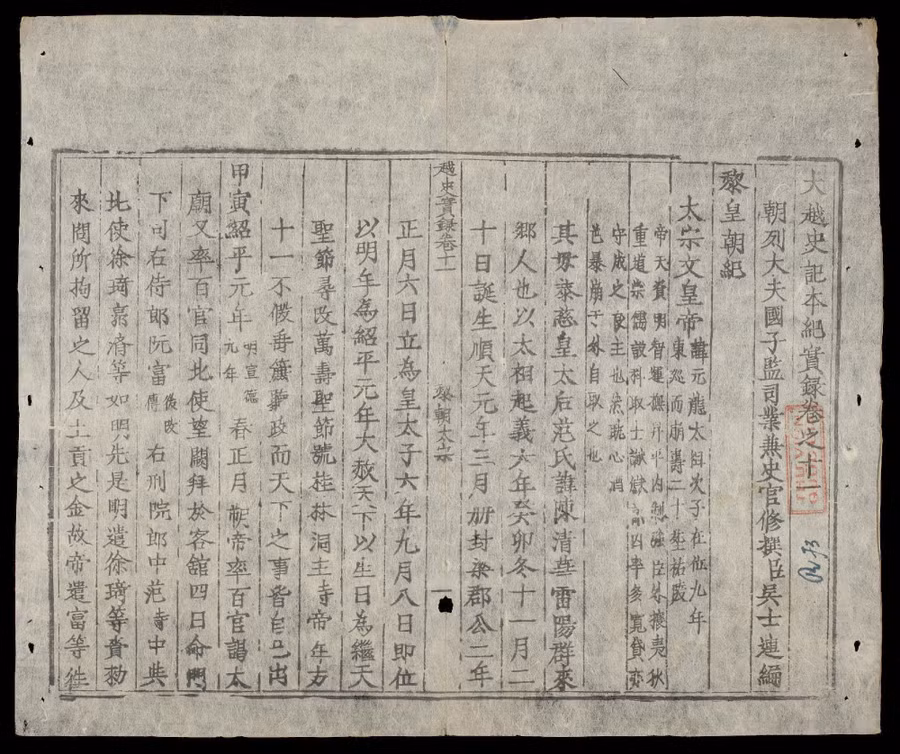 大越史記本紀實錄卷之十一
朝列大夫國子監司業兼史官修撰臣吳士連編
黎皇朝紀
太宗文皇帝
諱元龍太祖次子在位九年
東巡而崩壽二十塟祐陵
帝天資明智運撫升平內制強臣外攘夷狄
重道崇儒設科取士讞獄四率多寬貸亦
守成之良主也然耽心酒
色暴崩于外自取之也
其母恭慈皇太后范氏諱陳清華雷陽群來
鄉人也以太祖起義六年癸卯冬十一月二
十日誕生順天元年三月册封梁郡公二年
越史實錄卷十一 黎朝太宗 一
正月六日立為皇太子六年九月八日即位
以明年為紹平元年大赦天下以生日為繼天
聖節尋改萬壽聖節號桂林洞主寺帝年方
十一不假垂簾聽政而天下之事皆自己出
甲寅紹平元年 明宣德元年 春正月朔帝率百官謁太
廟又率百官同北使望闕拜於客舘四日命門
下司右侍郎阮富 後改傅 右刑院郎中范寺中
北使徐琦郭濟等如明先是明遣徐琦等賫勑
來問所拘留之人及土貢之金故帝遣富等徃